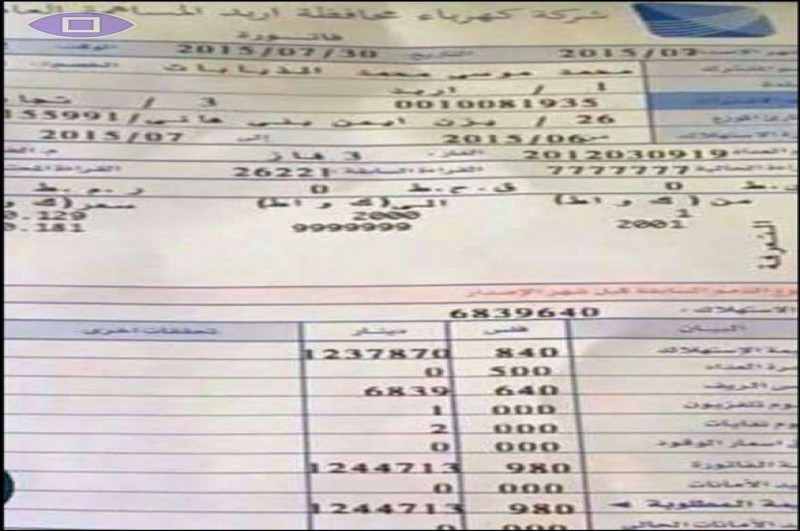 شركة كهرباء محافظة اربد المساهمة العا
فاتورة
2015/07 التاريخ 2015/07/30 الوقت: 2
محمد موسى محمد الذيابات
1 / اربد
0010081935 3 / تجا
26 / يزن ايمن بني هاني/155991
من 2015/06 الى 2015/07
2012030919 3 فاز
القراءة الحالية 7777777 القراءة السابقة 26221
ك.ط 0 ق.ح.ط 0 ر.م.ط
من (ك و اط) الى (ك و اط) سعر (ك و
1 2000 0.129
2001 9999999 0.181
التعرفة
الذمم السابقة قبل شهر الإصدار
الاستهلاك - 6839640
البيان فلس دينار تحققات اخرى
قيمة الاستهلاك 840 1237870
اجرة العداد 500 0
فلس الريف 640 6839
رسوم تلفزيون 000 1
رسوم نفايات 000 2
فرق اسعار الوقود 000 0
قيمة الفاتورة 980 1244713
رصيد الأمانات 000 0
القيمة المطلوبة 980 1244713
رصيد الأمانات الحالي 000 0